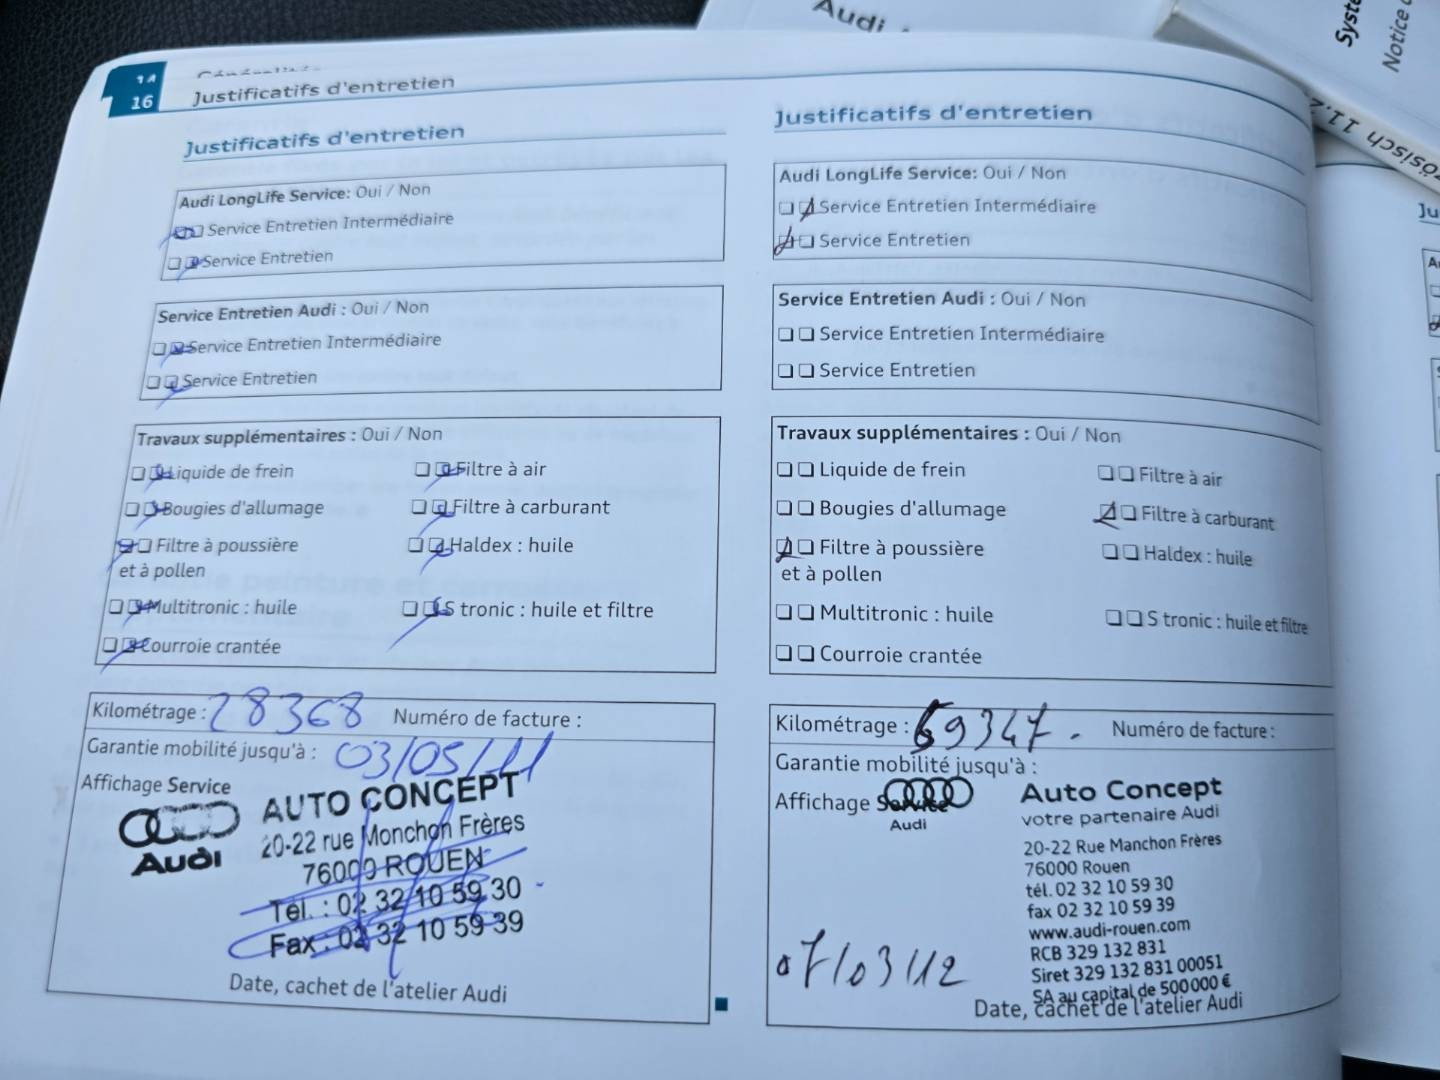 Audi
Syste
Notice
ösisch 11.2
14
16
Généralités
Justificatifs d'entretien
Justificatifs d'entretien
Audi LongLife Service: Oui / Non
Service Entretien Intermédiaire
Service Entretien
Service Entretien Audi : Oui / Non
Service Entretien Intermédiaire
Service Entretien
Travaux supplémentaires : Oui / Non
Liquide de frein Filtre à air
Bougies d'allumage Filtre à carburant
Filtre à poussière Haldex : huile
et à pollen
Multitronic : huile S tronic : huile et filtre
Courroie crantée
Kilométrage : 28368 Numéro de facture :
Garantie mobilité jusqu'à : 03/05/11
Affichage Service
Audi
AUTO CONCEPT
20-22 rue Monchon Frères
76000 ROUEN
Tél. : 02 32 10 59 30
Fax : 02 32 10 59 39
Date, cachet de l'atelier Audi
Justificatifs d'entretien
Audi LongLife Service: Oui / Non
Service Entretien Intermédiaire
Service Entretien
Service Entretien Audi : Oui / Non
Service Entretien Intermédiaire
Service Entretien
Travaux supplémentaires : Oui / Non
Liquide de frein Filtre à air
Bougies d'allumage Filtre à carburant
Filtre à poussière Haldex : huile
et à pollen
Multitronic : huile S tronic : huile et filtre
Courroie crantée
Kilométrage : 69347. Numéro de facture :
Garantie mobilité jusqu'à :
Affichage Service
Audi
Auto Concept
votre partenaire Audi
20-22 Rue Manchon Frères
76000 Rouen
tél. 02 32 10 59 30
fax 02 32 10 59 39
www.audi-rouen.com
RCB 329 132 831
Siret 329 132 831 00051
SA au capital de 500 000 €
07/03/12
Date, cachet de l'atelier Audi
Ju